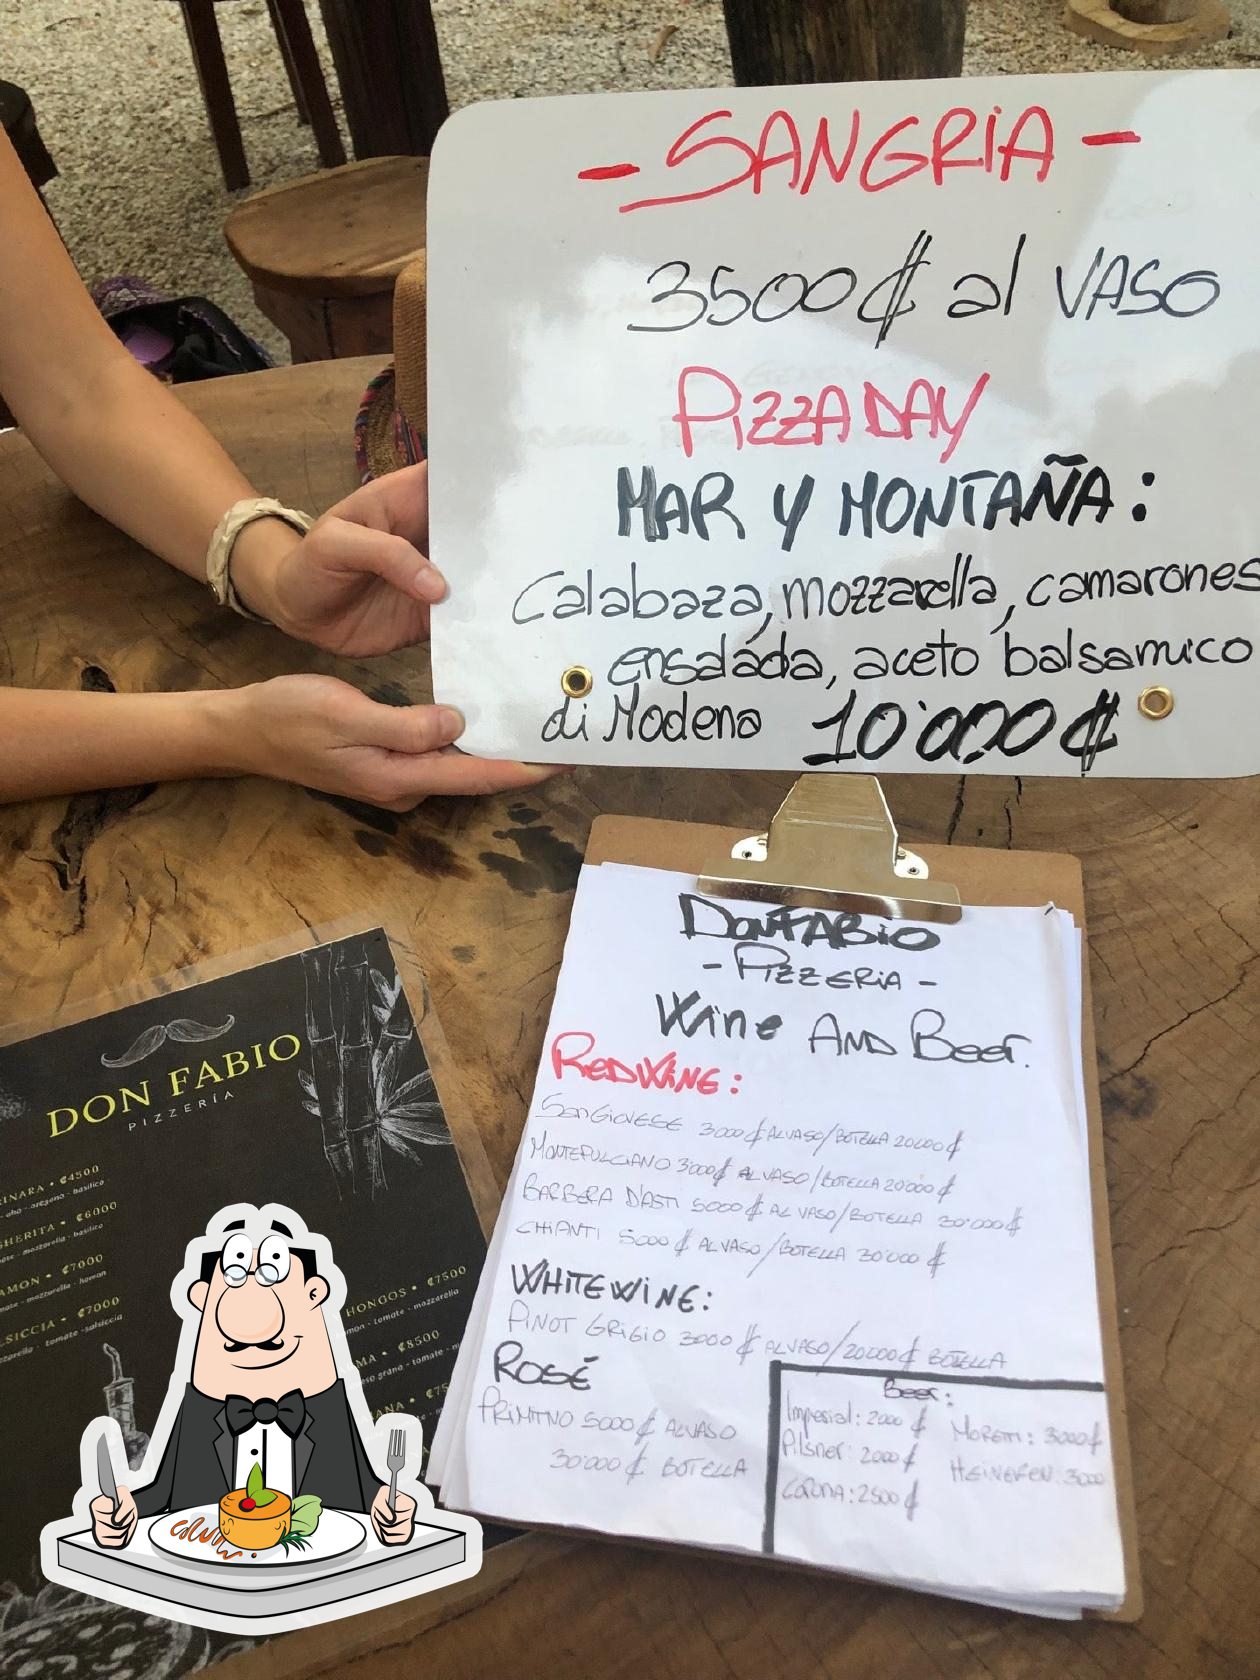 - SANGRIA -
3500₡ al VASO
PIZZA DAY
MAR Y MONTAÑA:
Calabaza, mozzarella, camarones
ensalada, aceto balsamico
di Modena 10'000₡
DON FABIO
- PIZZERIA -
Wine AND Beer.
RED WINE:
SANGIOVESE 3000₡ AL VASO/BOTELLA 20000₡
MONTEPULCIANO 3'000₡ AL VASO/BOTELLA 20'000₡
BARBERA D'ASTI 5000₡ AL VASO/BOTELLA 30'000₡
CHIANTI 5000₡ AL VASO/BOTELLA 30'000₡
WHITE WINE:
PINOT GRIGIO 3000₡ AL VASO/20000₡ BOTELLA
ROSÉ
5000₡ AL VASO
30'000₡ BOTELLA
Beer:
Imperial: 2000₡
Pilsner: 2000₡
CORONA: 2500₡
MORETTI: 3000₡
HEINEKEN: 3000
DON FABIO
PIZZERÍA
INARA • ₡4500
- oregano - basilico
GHERITA • ₡6000
mate - mozzarella - basilico
AMON • ₡7000
mate - mozzarella -
LSICCIA • ₡7000
zarella - tomate - salsiccia
HONGOS • ₡7500
mon - tomate - mozzarella
MA • ₡8500
ANA • ₡75